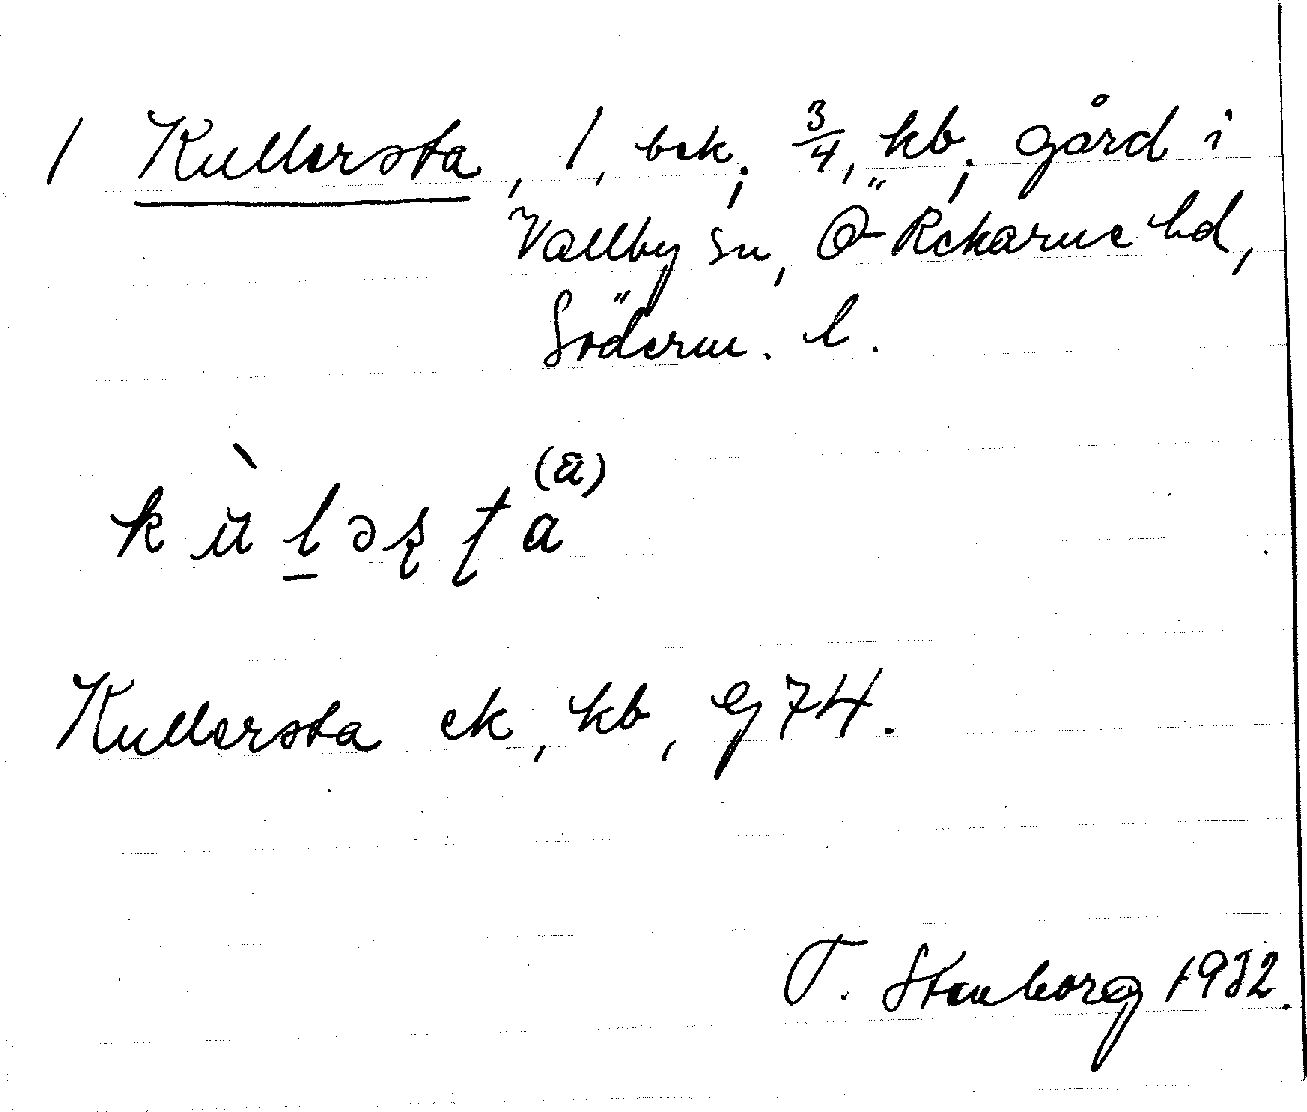 1 Kullersta, 1, bek; 3/4, kb; gård i
Vallby sn, Ö Rekarne hd,
Söderm. l.
(ā)
kùləşţa
Kullersta ek, kb, G 74.
T. Stenborg 1932.